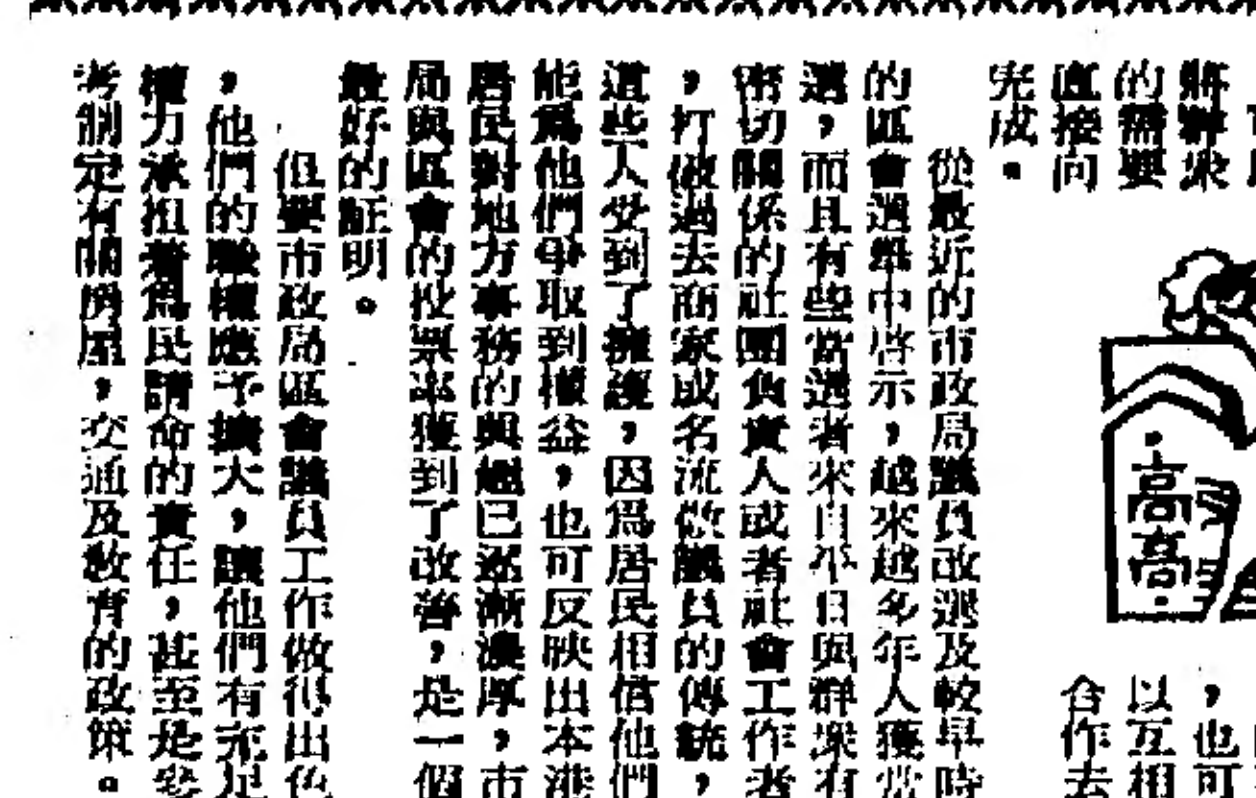 將群衆
的需要
直接向
完成。
，高高．
，也可
以互相
合作去
從最近的市政局議員改選及較早時
的區會選舉中啓示，越來越多年人獲當
選，而且有些當選者來自平日與群衆有
密切關係的社團負責人或者社會工作者
，打破過去商家或名流做議員的傳統，
這些人受到了擁護，因爲居民相信他們
能爲他們爭取到權益，也可反映出本港
居民對地方事務的興趣已逐漸濃厚，市
局與區會的投票率獲到了改善，是一個
最好的証明。
但要市政局區會議員工作做得出色
，他們的職權應予擴大，讓他們有充足
權力承担着爲民請命的責任，甚至是參
考制定有關房屋，交通及教育的政策。